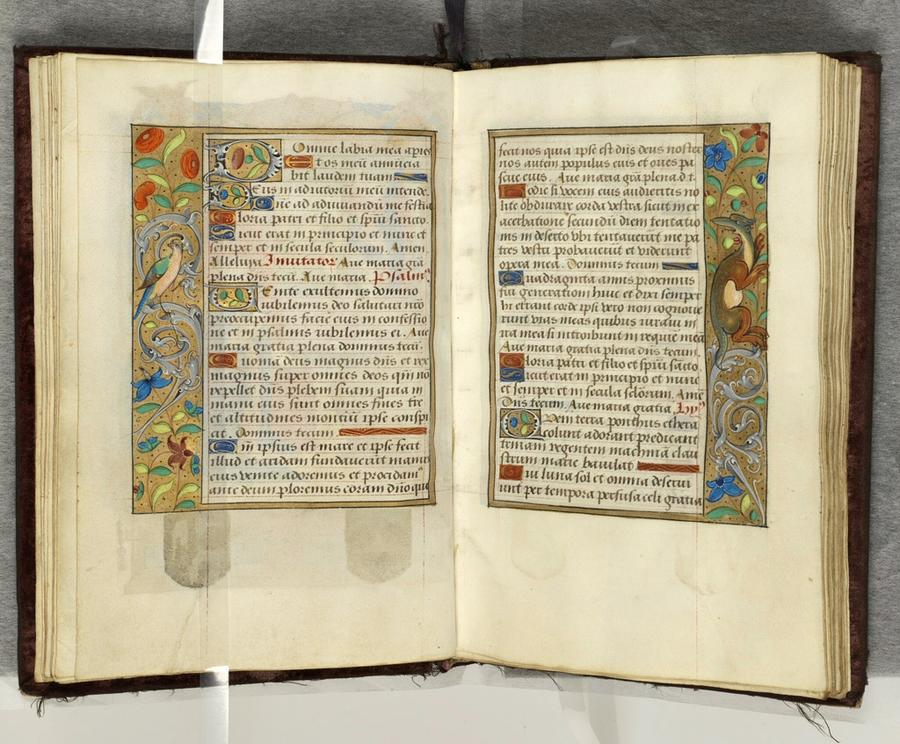 Omine labia mea apies
t os meū annūcia
bit laudem tuam
Eus in adiutoriū meū intende.
Dn̄e ad adiuuandū me festia
Gloria patri et filio et spūi sancto.
Sicut erat in principio et nunc et
semper et in secula seculorum. Amen
Alleluya Inuitator Aue maria grā
plena dn̄s tecū. Aue maria. Psalm9
Enite exultemus domino
iubilemus deo salutari nr̄o
preoccupemus faciē eius in confessio
ne et in psalmis iubilemus ei. Aue
maria gratia plena dominus tecū.
Quoniā deus magnus dn̄s et rex
magnus super omnes deos qm̄ nō
repellet dn̄s plebem suam quia in
manu eius sunt omnes fines tr̄e
et altitudines montiū ipse conspi
cit. Dominus tecum
Qm̄ ipsius est mare et ipse fecit
illud et aridam fundauerūt manus
eius venite adoremus et procidam9
ante deum ploremus coram dn̄o qui
fecit nos quia ipse est dn̄s deus noster
nos autem populus eius et oues pa
scue eius. Aue maria grā plena d. t.
Hodie si vocem eius audieritis no
lite obdurare corda vestra sicut in ex
acerbatione secundū diem temtatio
nis in deserto vbi temtauerūt me pa
tres vestri probauerūt et viderunt
opera mea. Dominus tecum
Quadraginta annis proximus
fui generationi huic et dixi semper
hi errant corde ipsi vero non cognoue
runt vias meas quibus iuraui in
ira mea si introibunt in requiē meā
Aue maria gratia plena dn̄s tecum.
Gloria patri et filio et spūi sācto.
Sicut erat in principio et nunc
et semper et in secula sclorum. Amē
Dn̄s tecum. Aue maria gratia Hy9
Vem terra ponthus ethera
colunt adorant predicant
trinam regentem machinā clau
strum marie baiulat
Cui luna sol et omnia deserui
unt per tempora perfusa celi gratia